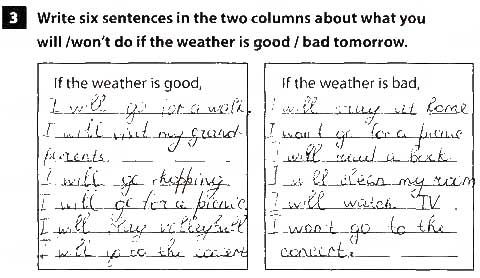 3 Write six sentences in the two columns about what you
will /won't do if the weather is good / bad tomorrow.
If the weather is good,
I will go for a walk.
I will visit my grand
parents
I will go shopping
I will go for a picnic
I will play volleyball
I will go to the concert
If the weather is bad,
I will stay at home
I won't go for a picnic
I will read a book.
I will clean my room
I will watch TV.
I won't go to the
concert.